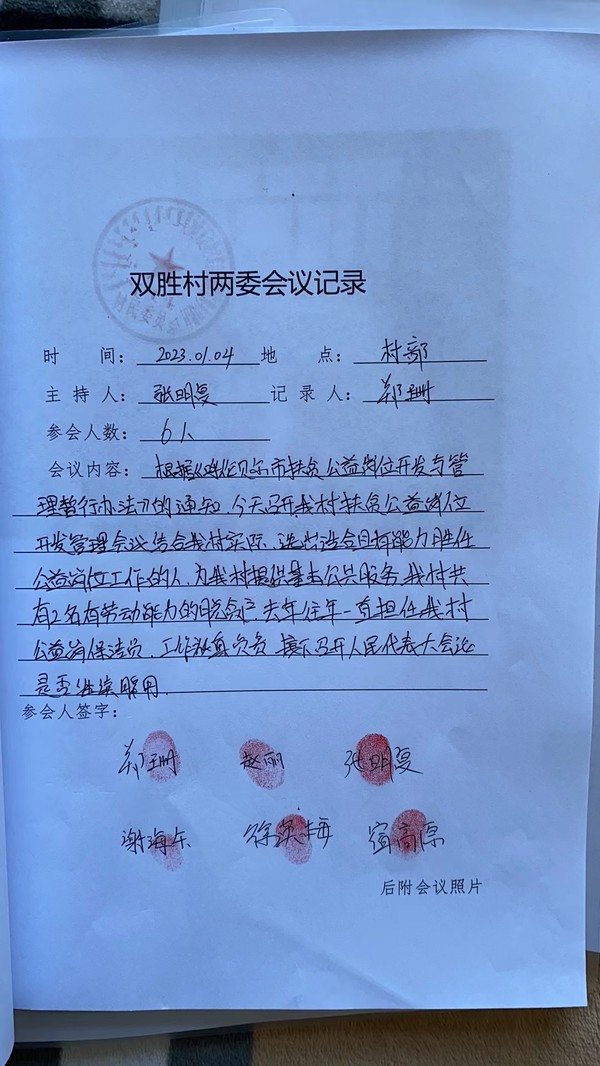 双胜村两委会议记录
时 间: 2023.01.04 地 点: 村部
主持人: 张明复 记录人: 郑珊
参会人数: 6人
会议内容: 根据《呼伦贝尔市扶贫公益岗位开发与管
理暂行办法》的通知,今天召开我村扶贫公益岗位
开发管理会议结合我村实际,选出适合且有能力胜任
公益岗位工作的人,为我村提供基本公共服务,我村共
有2名有劳动能力的脱贫户,去年往年一直担任我村
公益岗保洁员,工作认真负责,接下召开人民代表大会议
是否继续聘用.
参会人签字:
郑珊 赵丽 张明复
谢海东 徐英梅 宿高原
后附会议照片